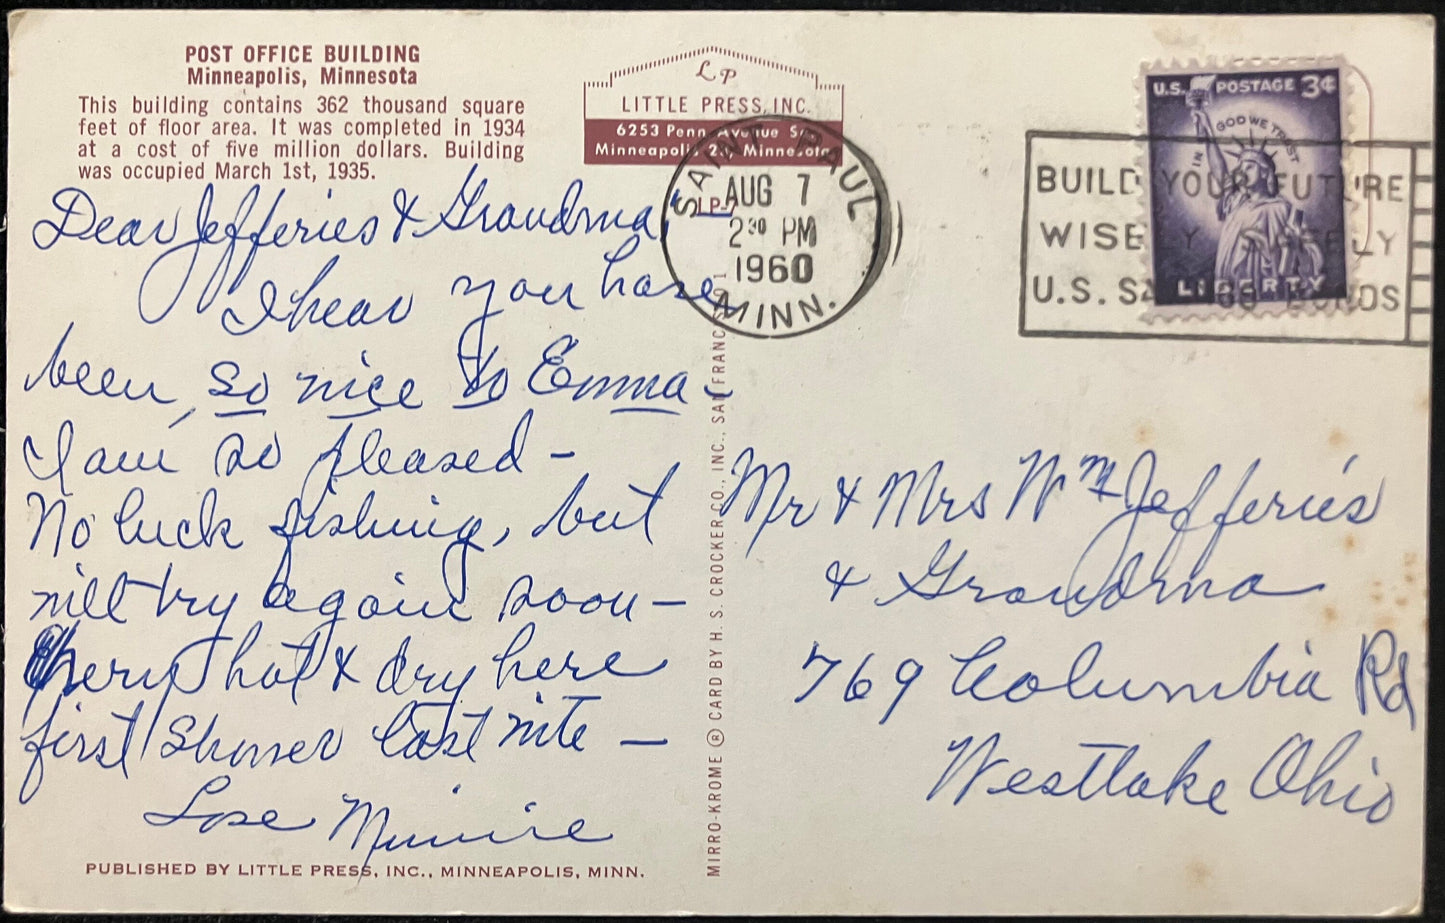 POST OFFICE BUILDING
Minneapolis, Minnesota
This building contains 362 thousand square
feet of floor area. It was completed in 1934
at a cost of five million dollars. Building
was occupied March 1st, 1935.
LP
LITTLE PRESS, INC.
6253 Penn Avenue So.
Minneapolis Minnesota
LP-
SAINT PAUL
AUG 7
2 30 PM
1960
MINN.
U.S. POSTAGE 3¢
IN GOD WE TRUST
LIBERTY
BUILD YOUR FUTURE
WISELY SAFELY
U.S. SAVINGS BONDS
Dear Jefferies & Grandma,
I hear you have
been so nice to Emma -
I am so pleased -
No luck fishing, but
will try again soon -
very hot & dry here
first shower last nite -
Love Minnie
Mr & Mrs Wm Jefferies
& Grandma
769 Columbia Rd
Westlake Ohio
MIRRO-KROME ® CARD BY H. S. CROCKER CO., INC., SAN FRANCISCO 1
PUBLISHED BY LITTLE PRESS, INC., MINNEAPOLIS, MINN.